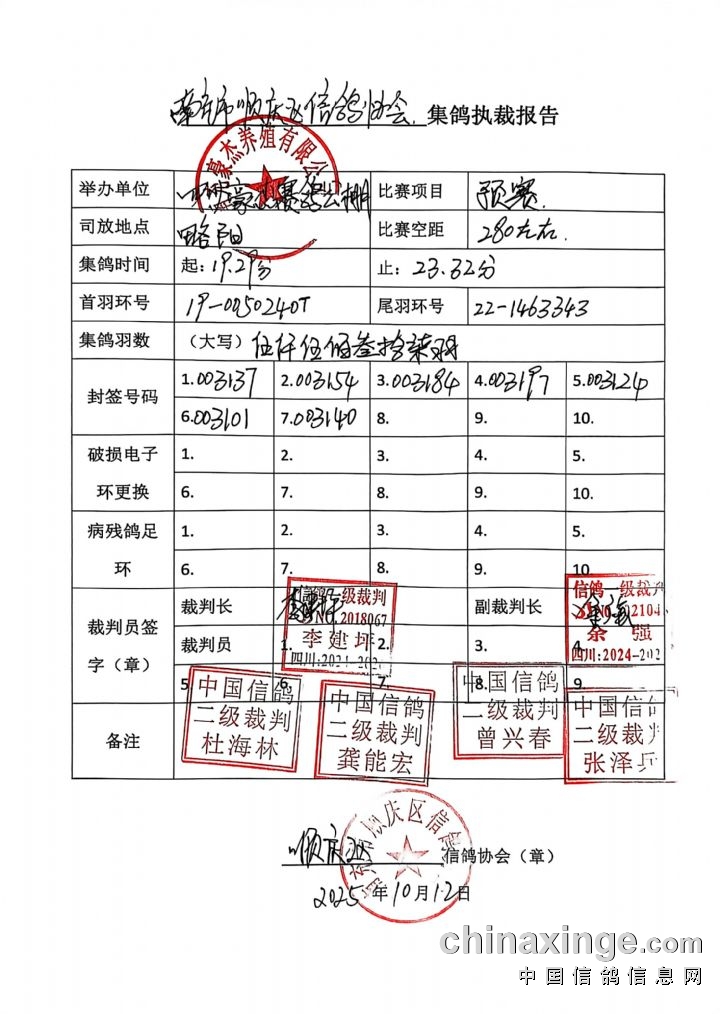 南充市顺庆区信鸽协会 集鸽执裁报告
豪杰养殖有限公
举办单位 豪杰赛鸽公棚 比赛项目 预赛
司放地点 略阳 比赛空距 280左右
集鸽时间 起:19.29分 止:23.32分
首羽环号 19-0050240T 尾羽环号 22-1463343
集鸽羽数 (大写)伍仟伍佰叁拾柒羽
封签号码 1.003137 2.003154 3.003184 4.003197 5.003124
6.003101 7.003140 8. 9. 10.
破损电子环更换 1. 2. 3. 4. 5.
6. 7. 8. 9. 10.
病残鸽足环 1. 2. 3. 4. 5.
6. 7. 8. 9. 10
裁判员签字(章) 裁判长 副裁判长
信鸽一级裁判
NO.2018067
李建坪
四川:2024-202
信鸽一级裁判
NO. 2104
余 强
四川:2024-202
裁判员 1. 2. 3. 4
5. 6. 7. 8. 9
备注
中国信鸽
二级裁判
杜海林
中国信鸽
二级裁判
龚能宏
中国信鸽
二级裁判
曾兴春
中国信鸽
二级裁判
张泽兵
顺庆区 信鸽协会(章)
顺庆区信鸽
2025年10月12日
chinaxinge.com
中国信鸽信息网